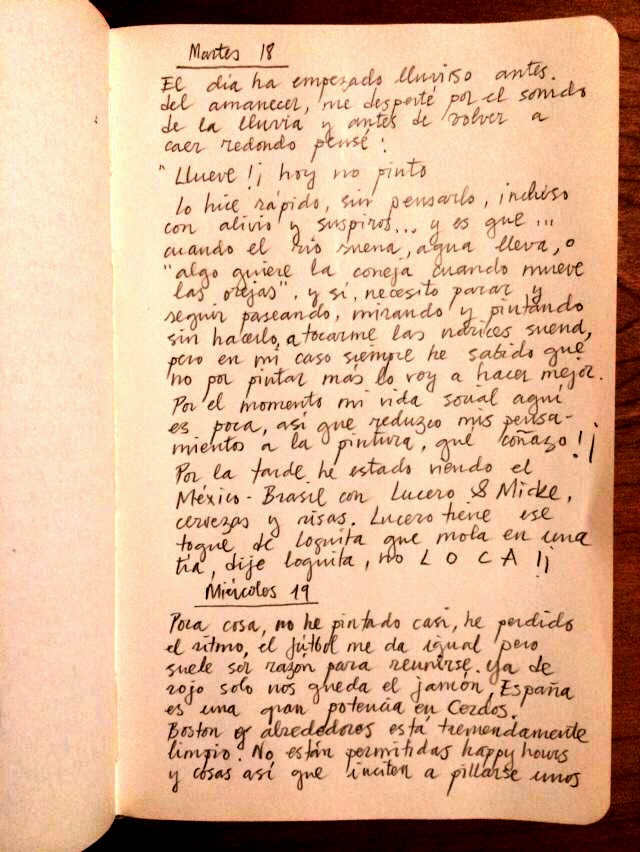 Martes 18
El día ha empezado lluvioso antes.
del amanecer, me desperté por el sonido
de la lluvia y antes de volver a
caer redondo pensé:
" Llueve!¡ hoy no pinto
Lo hice rápido, sin pensarlo, incluso
con alivio y suspiros... y es que...
cuando el río suena, agua lleva, o
"algo quiere la coneja cuando mueve
las orejas", y si, necesito parar y
seguir paseando, mirando y pintando
sin hacerlo, a tocarme las narices suena,
pero en mi caso siempre he sabido que
no por pintar más lo voy a hacer mejor.
Por el momento mi vida social aquí
es poca, así que reduzco mis pensa-
mientos a la pintura, qué coñazo!¡
Por la tarde he estado viendo el
México-Brasil con Lucero & Micke,
cervezas y risas. Lucero tiene ese
toque de loquita que mola en una
tía, dije loquita, no L O C A !¡
Miércoles 19
Poca cosa, no he pintado casi, he perdido
el ritmo, el fútbol me da igual pero
suele ser razón para reunirse. Ya de
rojo solo nos queda el jamón, España
es una gran potencia en Cerdos.
Boston & alrededores está tremendamente
limpio. No están permitidas happy hours
y cosas así que inciten a pillarse unos